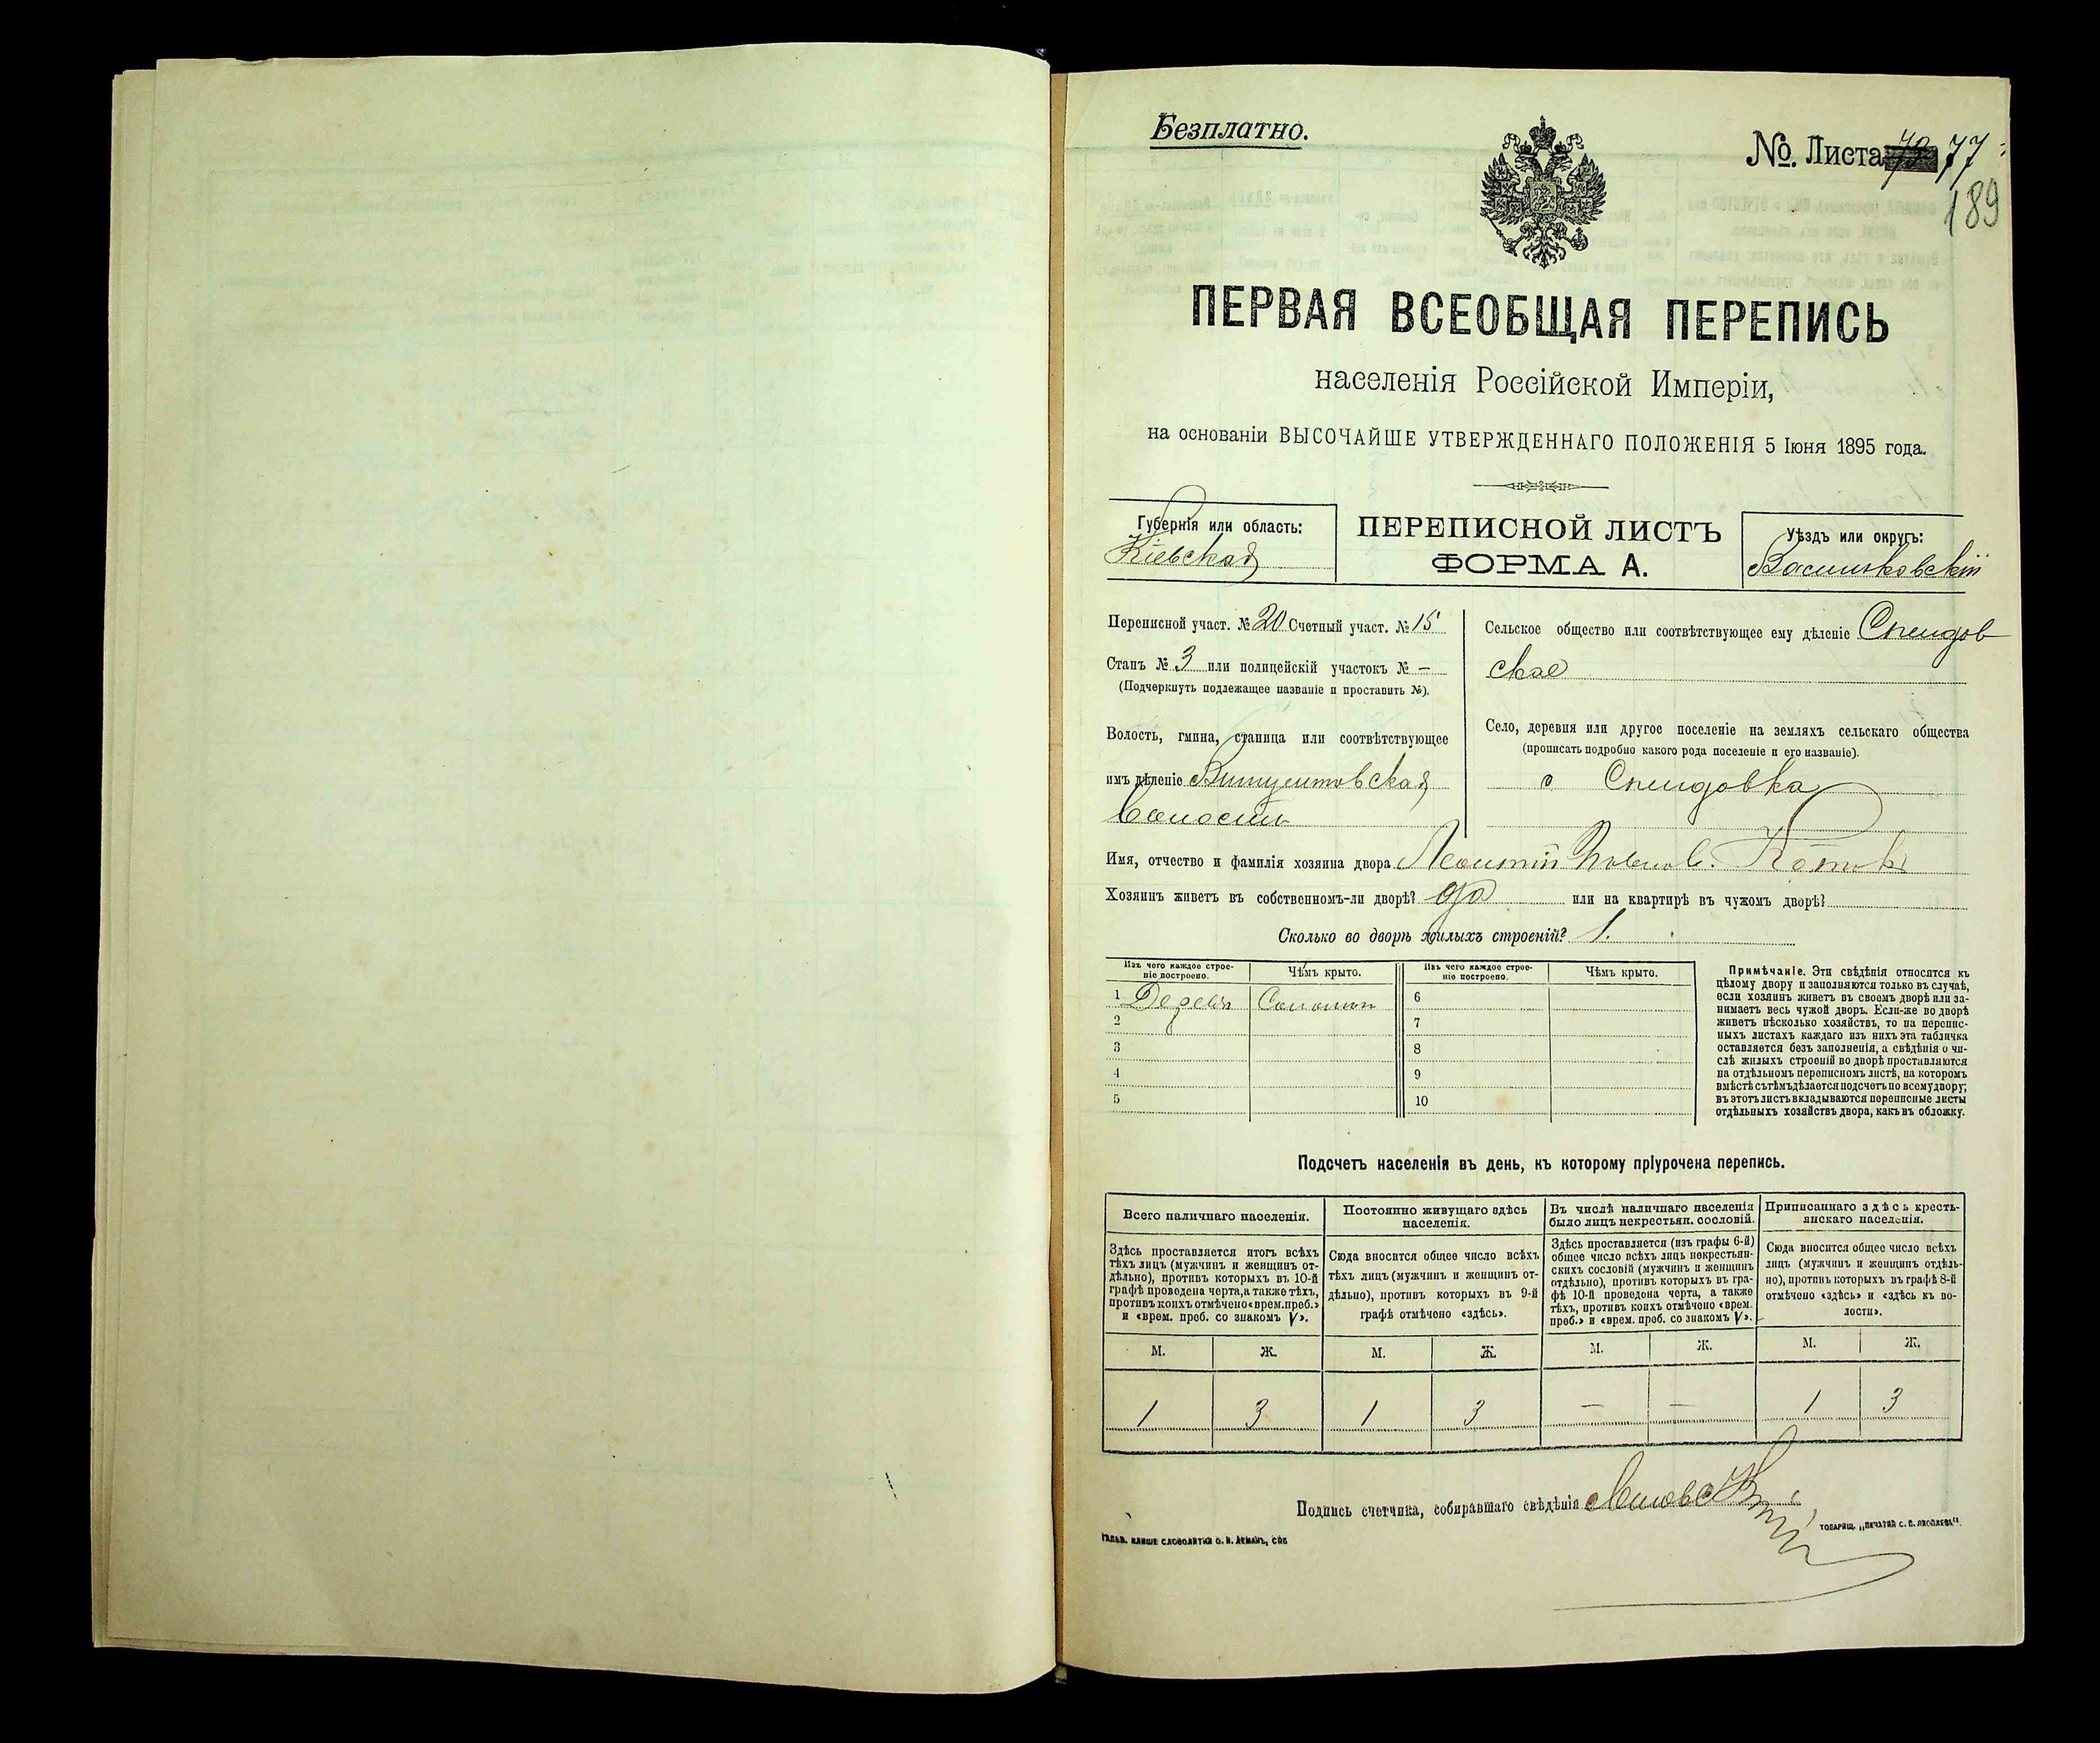 Безплатно.
№. Листа 77
189
ПЕРВАЯ ВСЕОБЩАЯ ПЕРЕПИСЬ
населенія Россійской Имперіи,
на основаніи ВЫСОЧАЙШЕ УТВЕРЖДЕННАГО ПОЛОЖЕНІЯ 5 Іюня 1895 года.
Губернія или область:
Кіевская
ПЕРЕПИСНОЙ ЛИСТЪ
ФОРМА А.
Уѣздъ или округъ:
Васильковскій
Переписной участ. № 20 Счетный участ. № 15
Станъ № 3 или полицейскій участокъ № —
(Подчеркнуть подлежащее названіе и проставить №).
Волость, гмина, станица или соотвѣтствующее
имъ дѣленіе
волости
Сельское общество или соотвѣтствующее ему дѣленіе
ское
Село, деревня или другое поселеніе на земляхъ сельскаго общества
(прописать подробно какого рода поселеніе и его названіе).
с
Имя, отчество и фамилія хозяина двора Леонтій
Хозяинъ живетъ въ собственномъ-ли дворѣ? да или на квартирѣ въ чужомъ дворѣ?
Сколько во дворѣ жилыхъ строеній? 1.
Изъ чего каждое строе-
ніе построено.
Чѣмъ крыто.
Изъ чего каждое строе-
ніе построено.
Чѣмъ крыто.
1 Дерев. Соломою 6
2 7
3 8
4 9
5 10
Примѣчаніе. Эти свѣдѣнія относятся къ
цѣлому двору и заполняются только въ случаѣ,
если хозяинъ живетъ въ своемъ дворѣ или за-
нимаетъ весь чужой дворъ. Если-же во дворѣ
живетъ нѣсколько хозяйствъ, то на перепис-
ныхъ листахъ каждаго изъ нихъ эта табличка
оставляется безъ заполненія, а свѣдѣнія о чи-
слѣ жилыхъ строеній во дворѣ проставляются
на отдѣльномъ переписномъ листѣ, на которомъ
вмѣстѣ съ тѣмъ дѣлается подсчетъ по всему двору;
въ этотъ листъ вкладываются переписные листы
отдѣльныхъ хозяйствъ двора, какъ въ обложку.
Подсчетъ населенія въ день, къ которому пріурочена перепись.
Всего наличнаго населенія.
Здѣсь проставляется итогъ всѣхъ
тѣхъ лицъ (мужчинъ и женщинъ от-
дѣльно), противъ которыхъ въ 10-й
графѣ проведена черта, а также тѣхъ,
противъ коихъ отмѣчено «врем. преб.»
и «врем. преб. со знакомъ V».
Постоянно живущаго здѣсь
населенія.
Сюда вносится общее число всѣхъ
тѣхъ лицъ (мужчинъ и женщинъ от-
дѣльно), противъ которыхъ въ 9-й
графѣ отмѣчено «здѣсь».
Въ числѣ наличнаго населенія
было лицъ некрестьян. сословій.
Здѣсь проставляется (изъ графы 6-й)
общее число всѣхъ лицъ некрестьян-
скихъ сословій (мужчинъ и женщинъ
отдѣльно), противъ которыхъ въ гра-
фѣ 10-й проведена черта, а также
тѣхъ, противъ коихъ отмѣчено «врем.
преб.» и «врем. преб. со знакомъ V».
Приписаннаго здѣсь кресть-
янскаго населенія.
Сюда вносится общее число всѣхъ
лицъ (мужчинъ и женщинъ отдѣль-
но), противъ которыхъ въ графѣ 8-й
отмѣчено «здѣсь» и «здѣсь къ во-
лости».
М. Ж. М. Ж. М. Ж. М. Ж.
1 3 1 3 — — 1 3
Подпись счетчика, собиравшаго свѣдѣнія
ГАЛЬВ. КЛИШЕ СЛОВОЛИТНИ О. И. ЛЕМАНЪ, СПБ
ТОВАРИЩ. „ПЕЧАТНЯ С. П. ЯКОВЛЕВА".